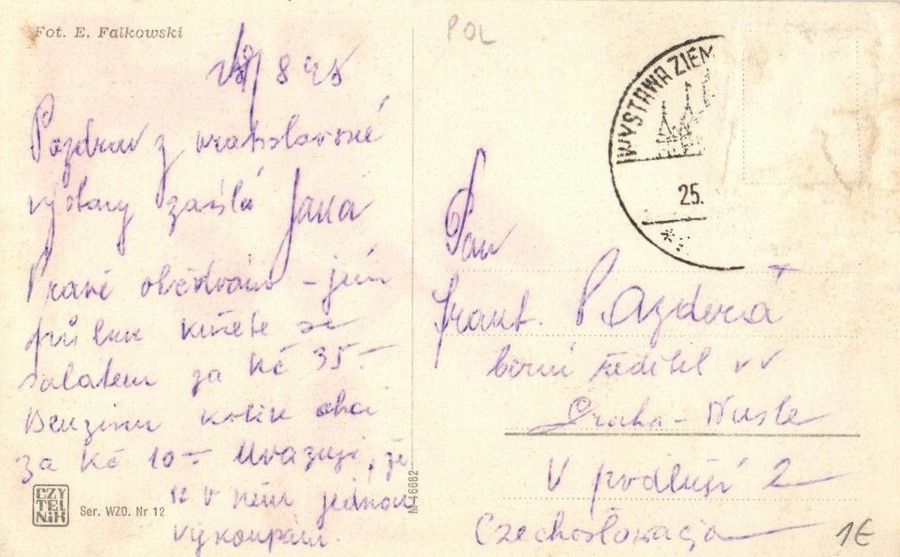 Fot. E. Falkowski
8 45
Pozdrav z vratislavské
výstavy zasílá Jana
Právě obědvám – jím
půlku kuřete se
salátem za Kč 35–
Benzinu kolik chci
za Kč 10– Uvažuji, že
se v něm jednou
vykoupám.
CZY
TEL
NIK
Ser. WZO. Nr 12
M-46682
POL
WYSTAWA ZIEM
25.
Pan
Frant. Pazderá
berní ředitel v v
Praha – Nusle
V podluží 2
Czechosłowacja
1€